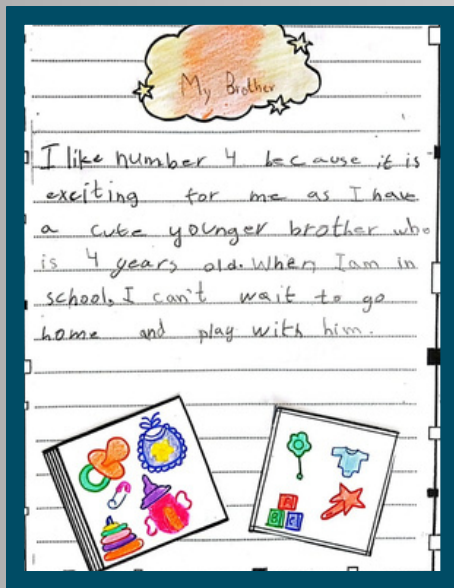 My Brother
I like number 4 because it is
exciting for me as I have
a cute younger brother who
is 4 years old. When I am in
school, I can't wait to go
home and play with him.
A
B C